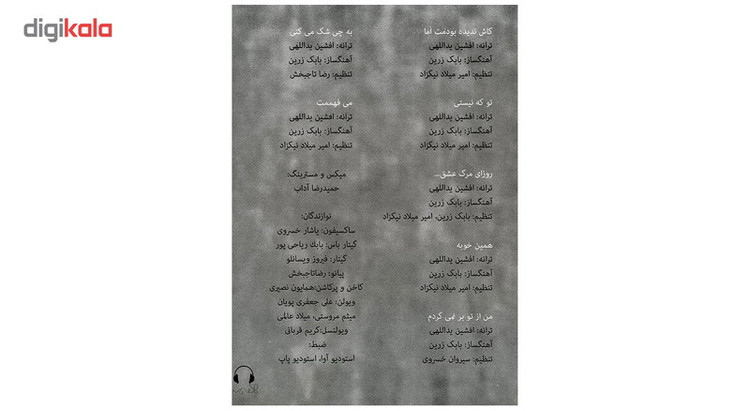 digikala
کاش ندیده بودمت اما
ترانه: افشین یداللهی
آهنگساز: بابک زرین
تنظیم: امیر میلاد نیکزاد
تو که نیستی
ترانه: افشین یداللهی
آهنگساز: بابک زرین
تنظیم: امیر میلاد نیکزاد
روزای مرگ عشق...
ترانه: افشین یداللهی
آهنگساز: بابک زرین
تنظیم: بابک زرین، امیر میلاد نیکزاد
همین خوبه
ترانه: افشین یداللهی
آهنگساز: بابک زرین
تنظیم: امیر میلاد نیکزاد
من از تو بر نمی گردم
ترانه: افشین یداللهی
آهنگساز: بابک زرین
تنظیم: سیروان خسروی
به چی شک می کنی
ترانه: افشین یداللهی
آهنگساز: بابک زرین
تنظیم: رضا تاجبخش
می فهممت
ترانه: افشین یداللهی
آهنگساز: بابک زرین
تنظیم: امیر میلاد نیکزاد
میکس و مسترینگ:
حمیدرضا آداب
نوازندگان:
ساکسیفون: یاشار خسروی
گیتار باس: بابک ریاحی پور
گیتار: فیروز ویسانلو
پیانو: رضاتاجبخش
کاخن و پرکاشن:همایون نصیری
ویولن: علی جعفری پویان
میثم مروستی، میلاد عالمی
ویولنسل:کریم قربانی
ضبط:
استودیو آوا، استودیو پاپ